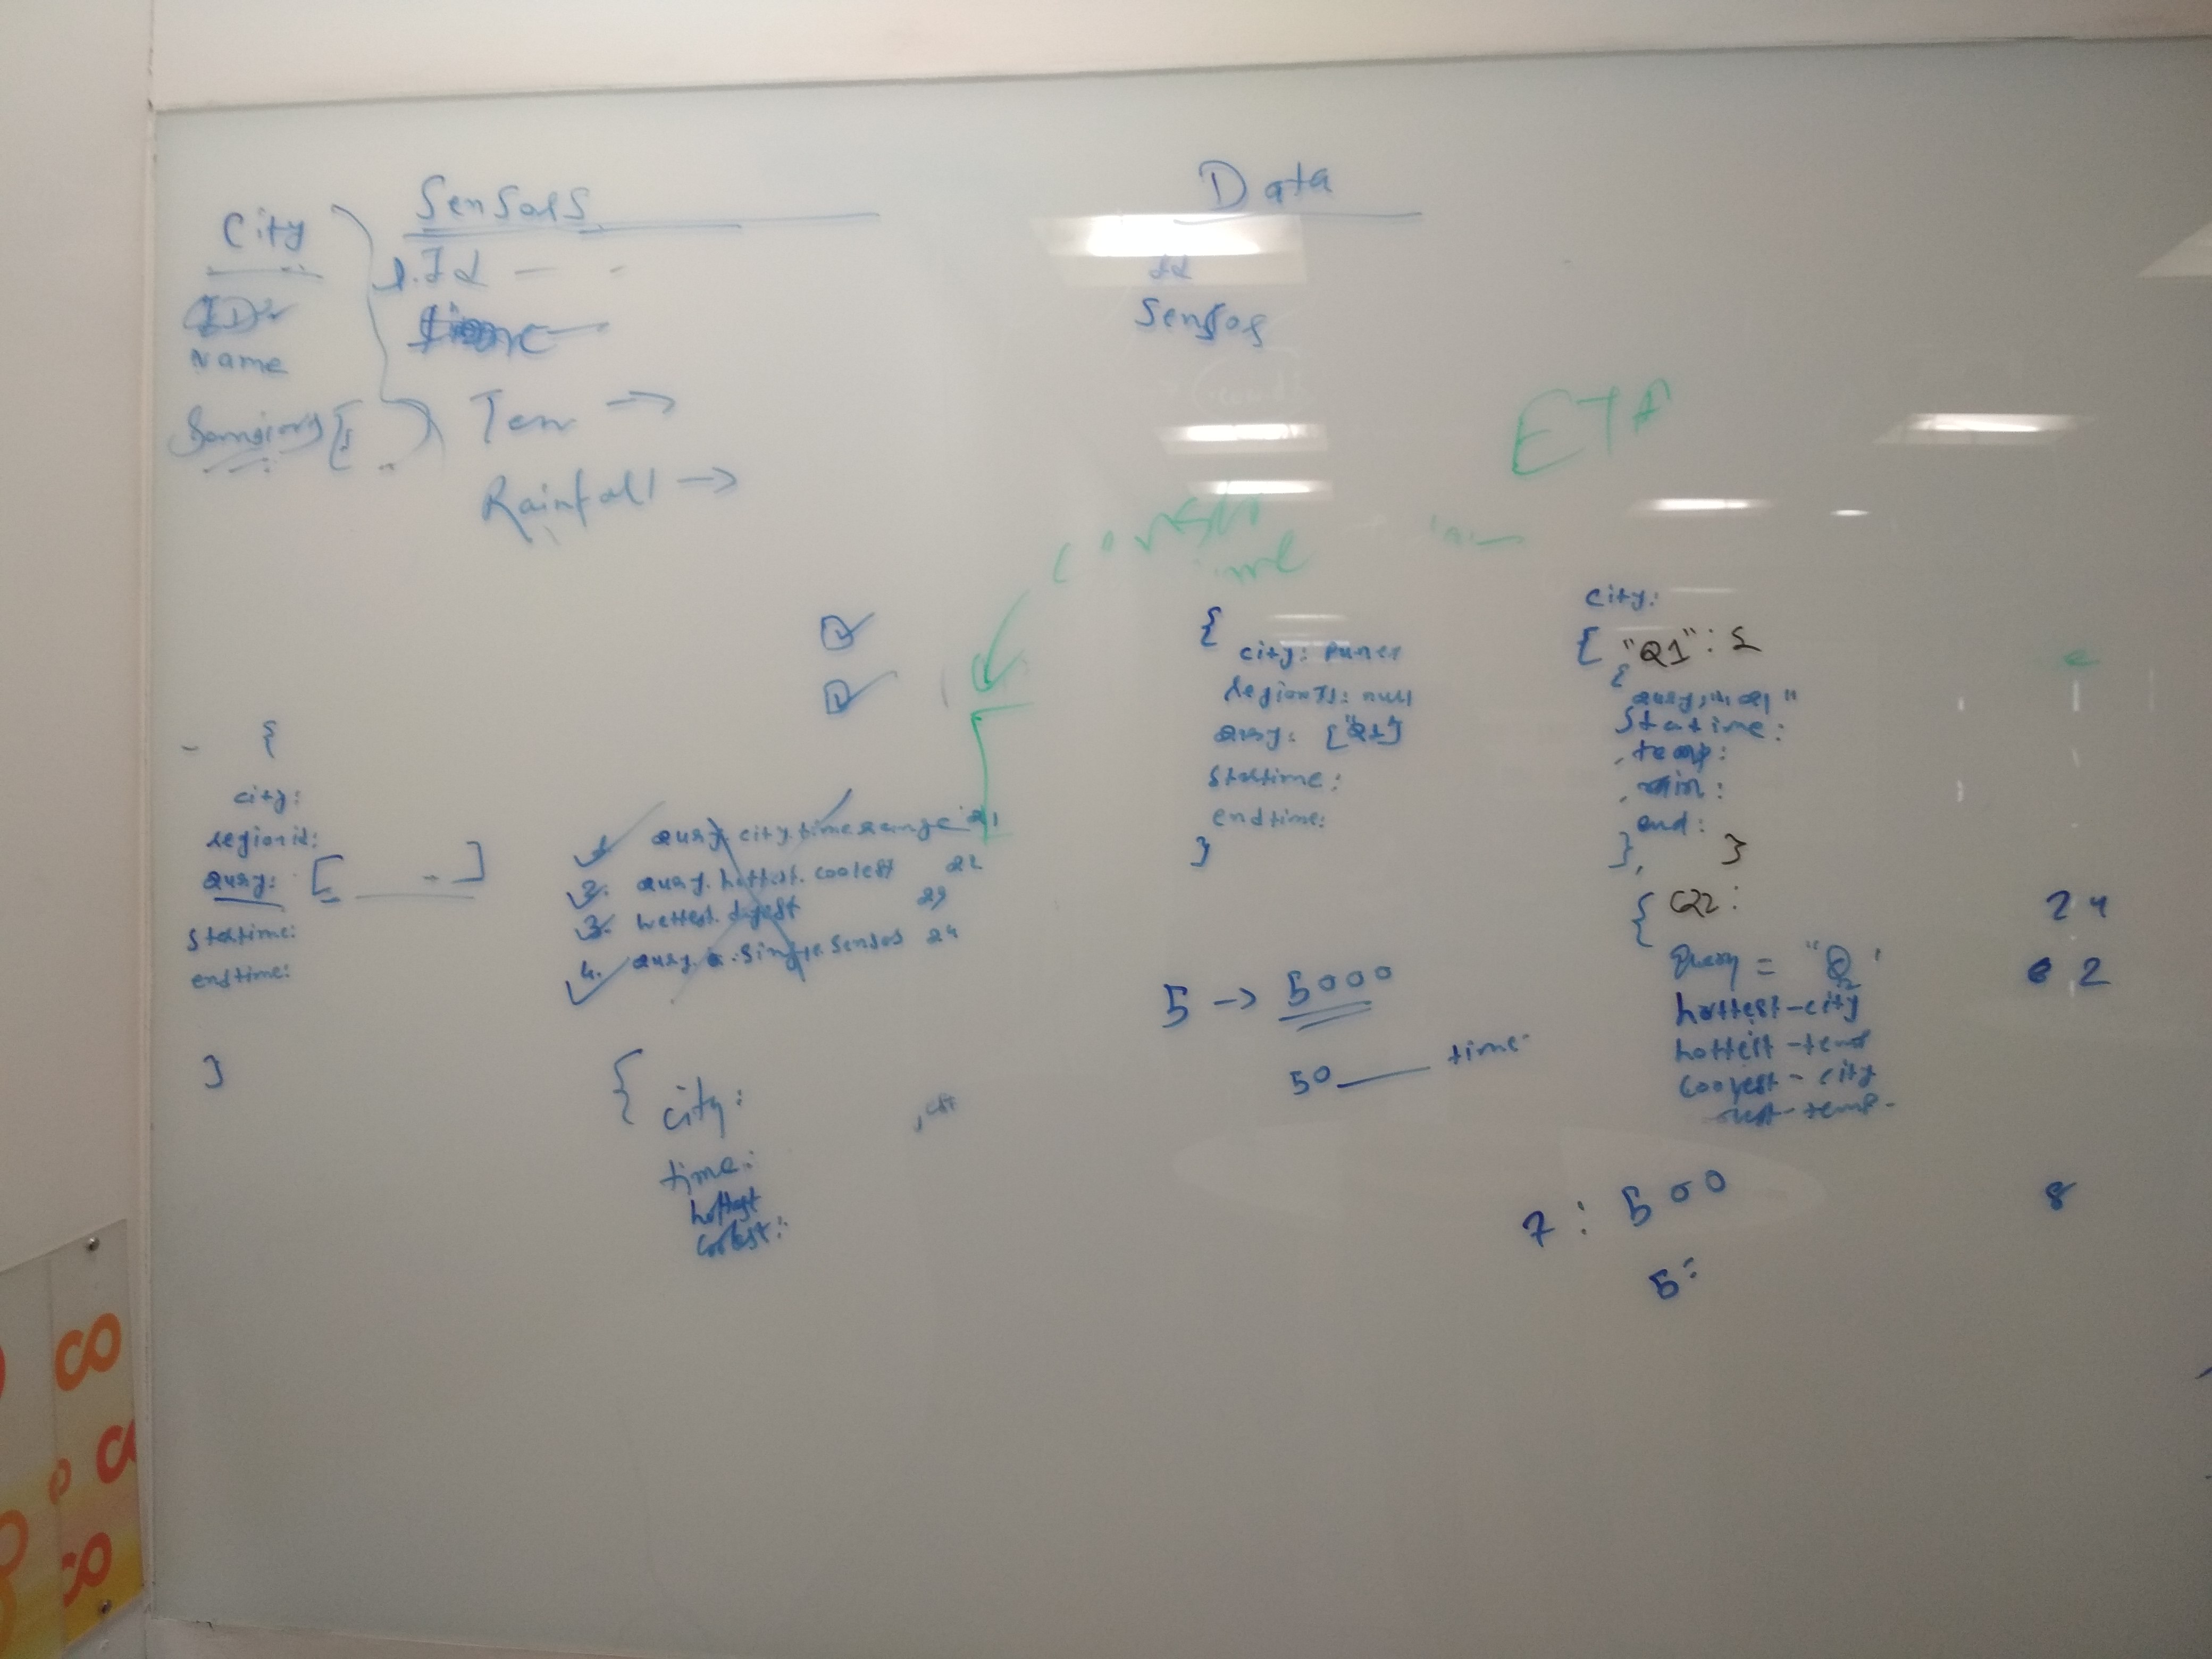 City
ID
Name
Sensors
1. Id - -
Time -
Tem →
Rainfall →
Data
Id
Sensor
ETA
time
{
city:
regionid:
query: [ ___ .. ]
startime:
endtime:
}
1. query.city.timerange Q1
2. query.hottest.coolest Q2
3. wettest.dryest Q3
4. query.a.single.sensor Q4
{ city:
time:
hottest
coolest:
{
city: Pune
regionId: null
query: ["Q1"]
startime:
endtime:
}
5 → 5000
50 ___ time
city:
[ "Q1": {
{
query: "Q1"
Statime:
, temp:
, rain:
end:
}, }
{ Q2:
Query = "Q2"
hottest-city
hottest-temp
coolest-city
-temp-
7 : 500
5:
24
62
8
co
co